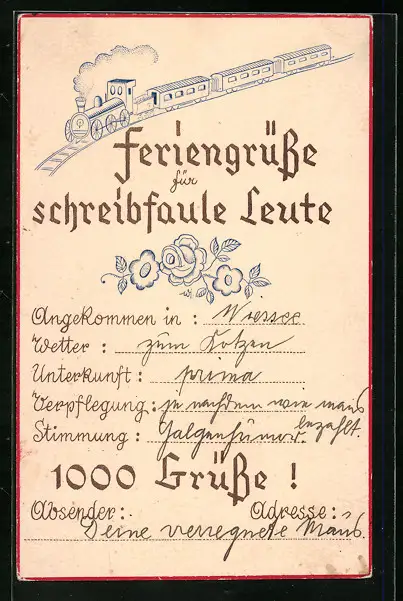 Feriengrüße
für
schreibfaule Leute
Angekommen in : Wiessee
Wetter : zum Kotzen
Unterkunft : prima
Verpflegung : je nachdem wie mans
bezahlt.
Stimmung : Galgenhumor.
1000 Grüße !
Absender : Adresse :
Deine verregnete Maus.